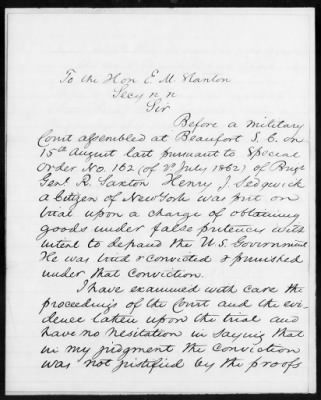 To the Hon E. M. Stanton
Secy
Sir
Before a military
Court assembled at Beaufort S. C. on
15th August last pursuant to Special
Order No. 162 (of July 1862) of Brig
Genl. R. Saxton Henry J. Sedgwick
a Citizen of New York was put on
trial upon a charge of obtaining
goods under false pretences with
intent to defraud the U. S. Government
He was tried & convicted & punished
under that conviction.
I have examined with care the
proceedings of the Court and the evi
dence taken upon the trial and
have no hesitation in saying that
in my judgment the conviction
was not justified by the proofs